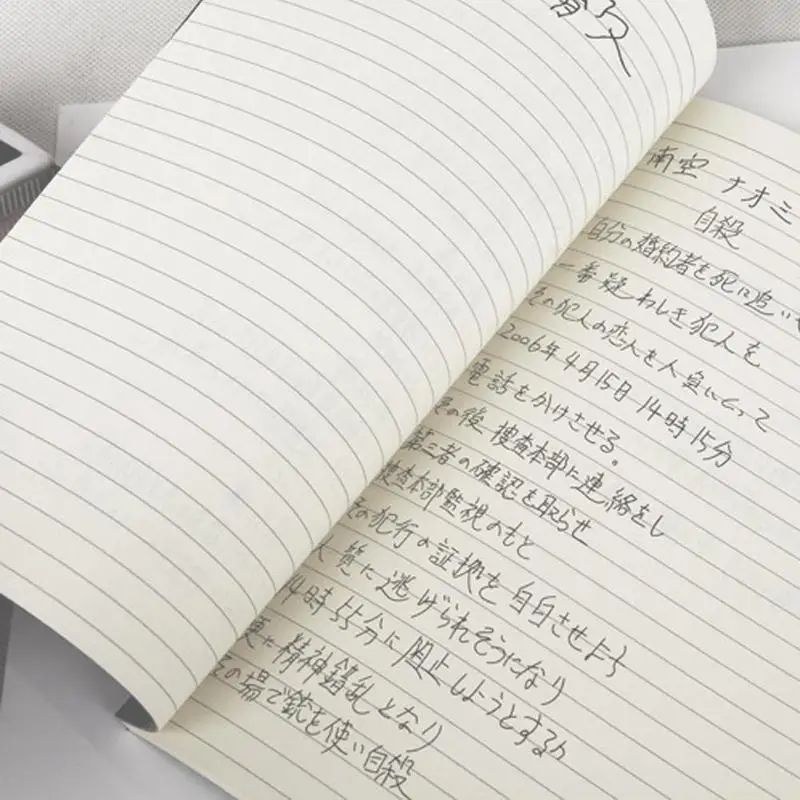 南空 ナオミ
自殺
自分の婚約者を死に追い
一番疑わしき犯人を
その犯人の恋人を人質にとって
2006年4月15日14時15分
電話をかけさせる。
その後 捜査本部に連絡をし
第三者の確認を取らせ
捜査本部監視のもと
その犯行の証拠を自白させよう
人質に逃げられそうになり
14時55分に阻止しようとするが
更に精神錯乱となり
その場で銃を使い自殺